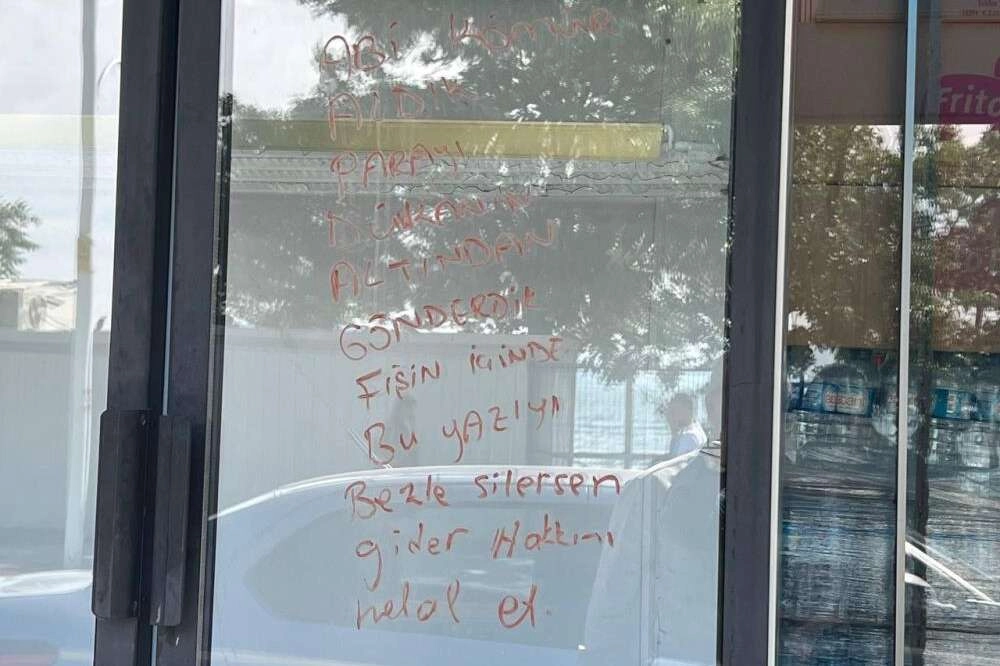 ABİ KÖMÜR
ALDIK
PARAYI
DÜKKANIN
ALTINDAN
GÖNDERDİK
FİŞİN İÇİNDE
BU YAZIYI
Bezle silersen
gider Hakkını
helal et.
Frito